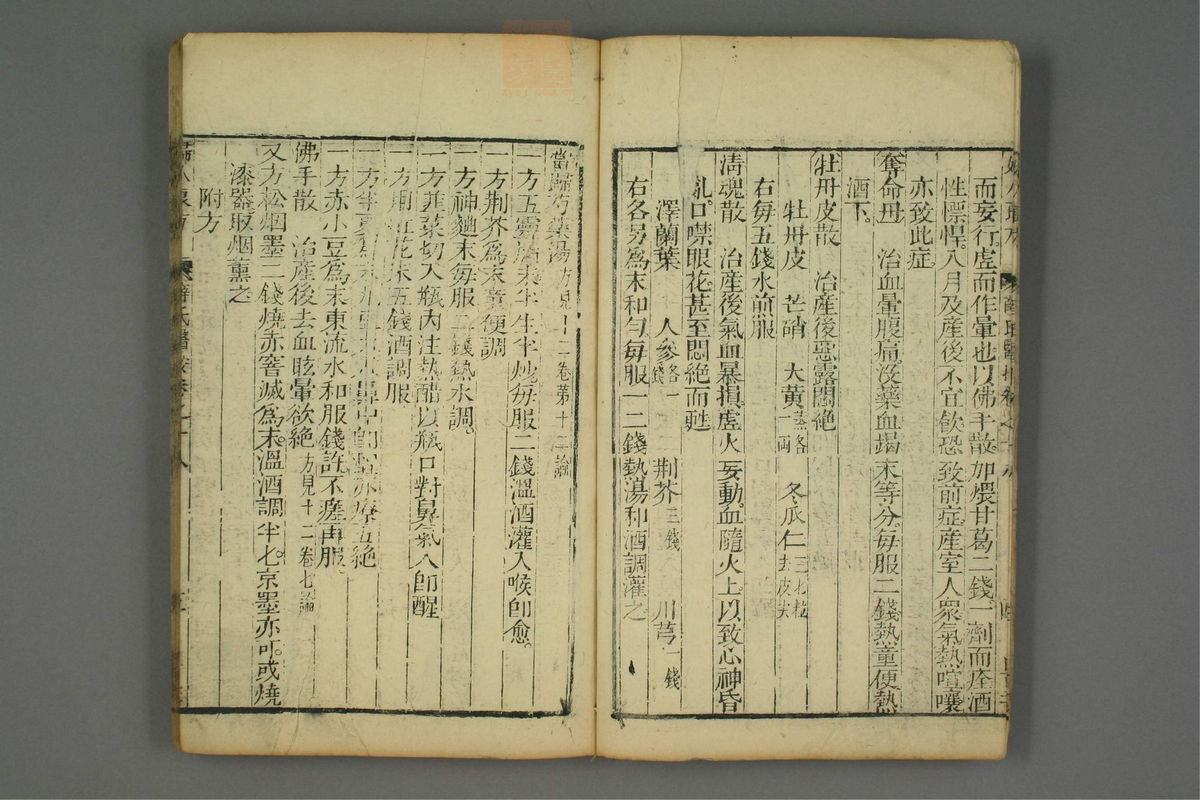 而妄行。虛而作暈也以佛手散加煨甘葛二錢一劑而痊酒
性慓悍八月及產後不宜飲恐致前症產室人衆氣熱喧嚷
亦致此症
奪命丹 治血暈腹痛沒藥血竭末等分。每服二錢熱童便熱
酒下。
牡丹皮散 治產後惡露悶絶
牡丹皮 芒硝 大黃蒸各一兩 冬瓜仁三七粒去皮尖
右每五錢水煎服
清魂散 治產後氣血暴損虛火妄動。血隨火上。以致心神昏
亂。口噤眼花。甚至悶絶而甦
澤蘭葉 人參各一錢 荆芥三錢 川芎一錢
右各另爲末和勻。每服一二錢熱湯和酒調灌之
當歸芍藥湯方見十二卷第十二論
一方五靈脂末半生半炒每服二錢溫酒灌入喉卽愈。
一方荆芥爲末童便調
一方神麯末每服二錢熱水調。
一方韭菜切入瓶內注熱醋以瓶口對鼻氣入卽醒
一方用紅花末五錢酒調服
一方半夏 鼻中卽 亦療五絶
一方赤小豆爲末東流水和服錢許不瘥再服。
佛手散 治產後去血眩暈欲絶方見十二卷七論
又方松烟墨二錢燒赤窨滅爲末溫酒調半匕。京墨亦可。或燒
漆器取烟薰之
附方